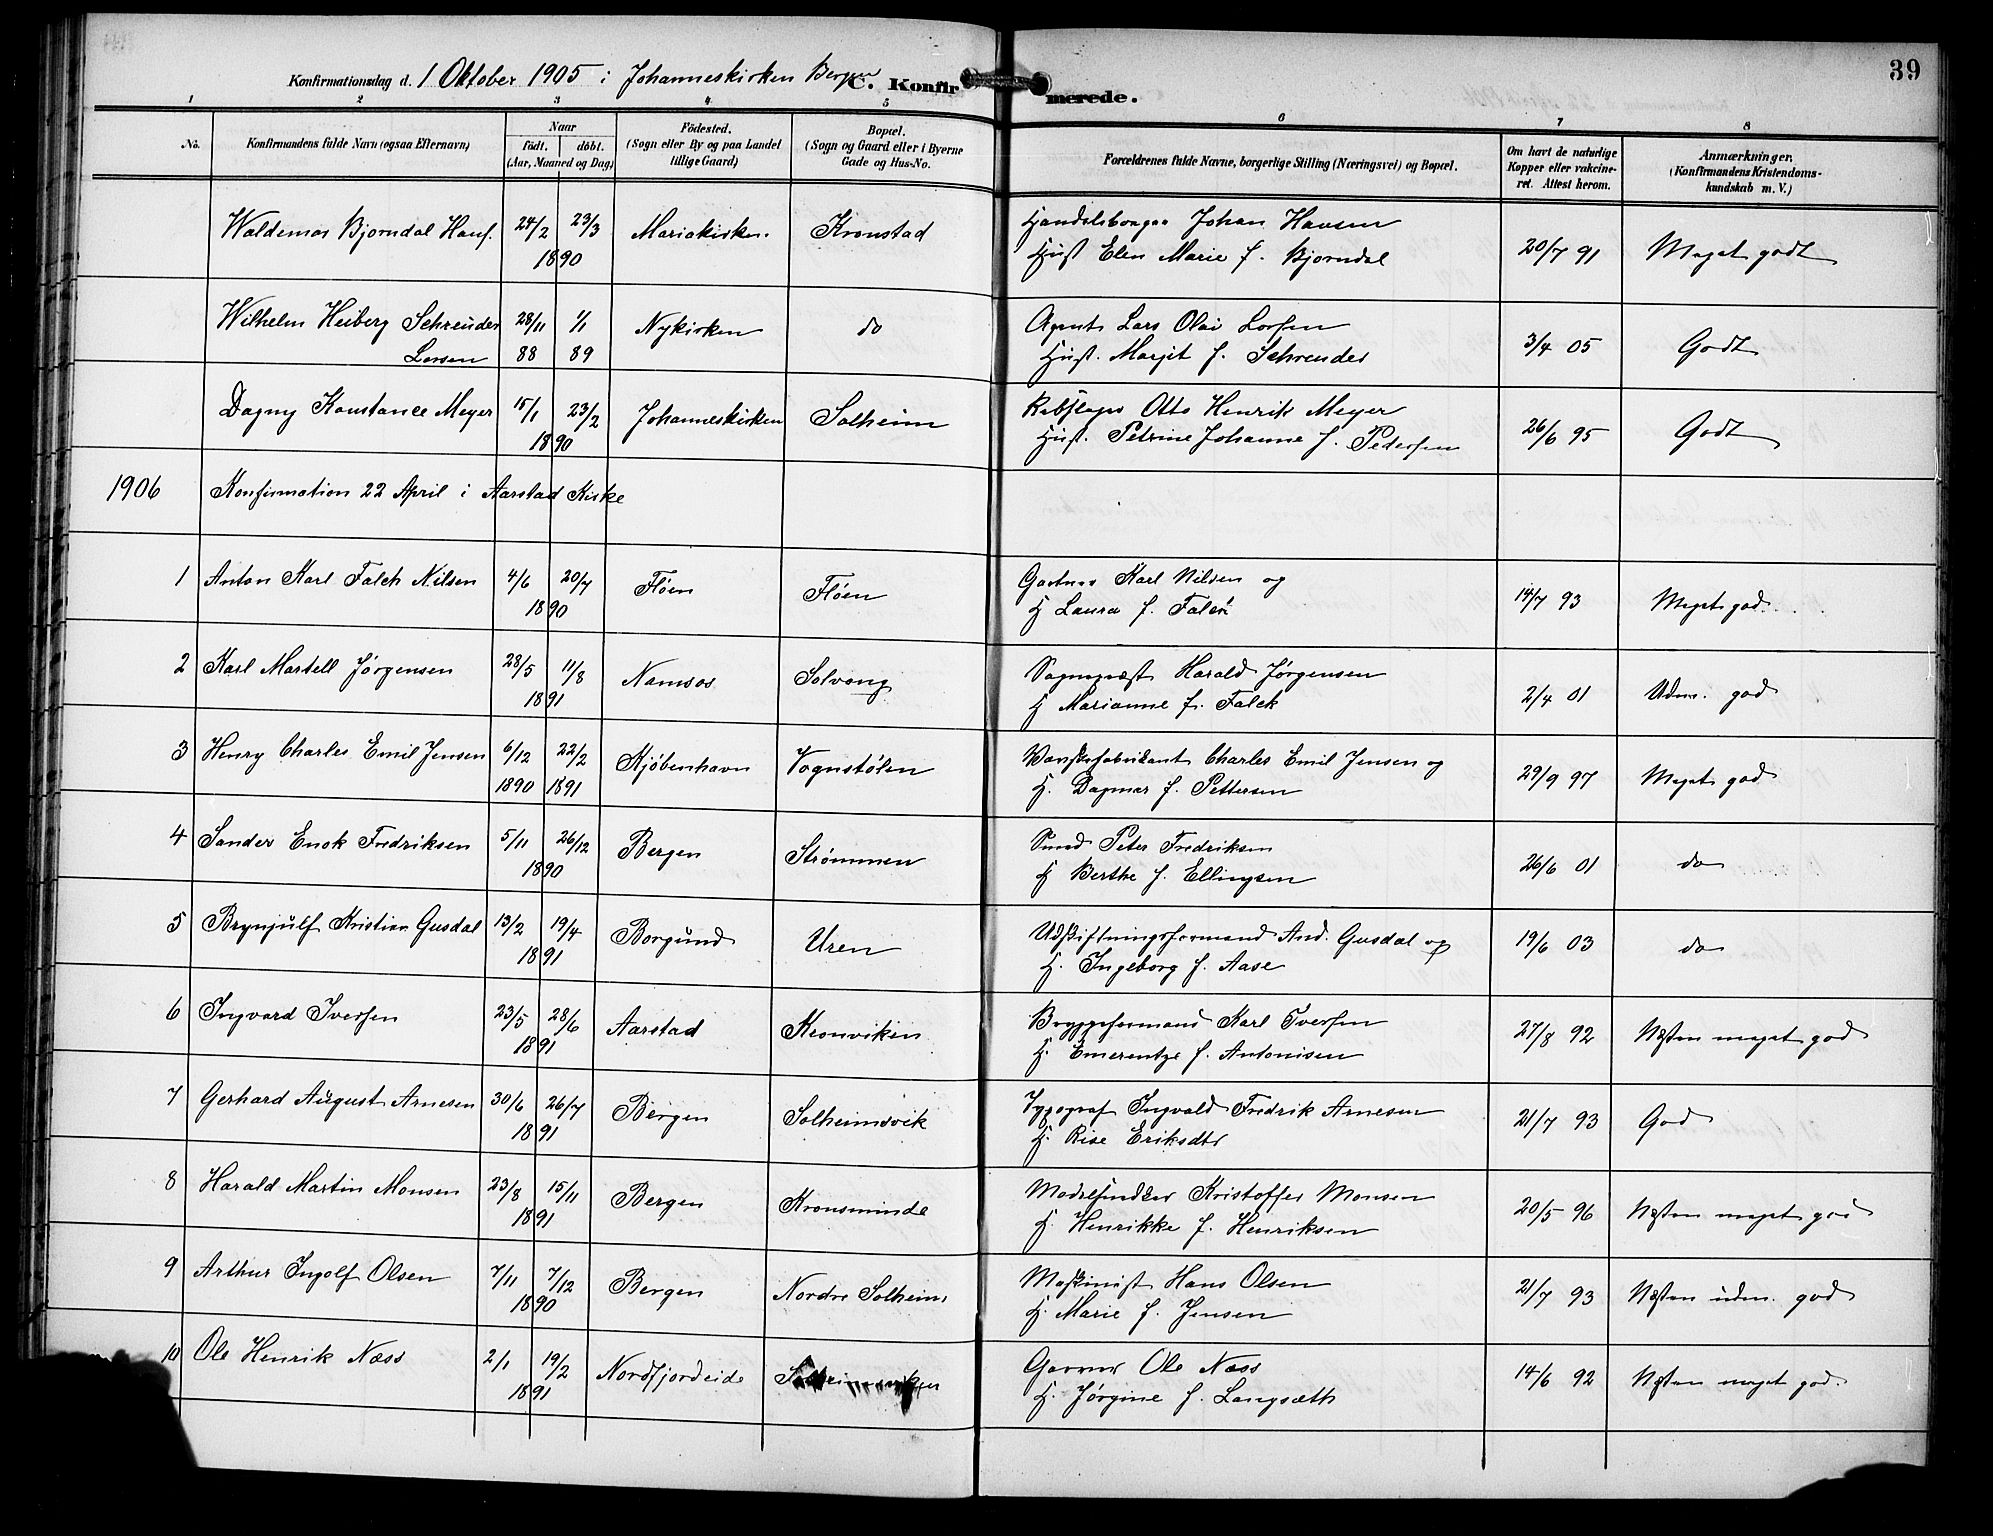 39
Konfirmationsdag d. 1 Oktober 1905 i Johanneskirken Bergen
C. Konfirmerede.
1 2 3 4 5 6 7 8
No.
Konfirmandens fulde Navn (ogsaa Efternavn)
Naar
födt. döbt.
(Aar, Maaned og Dag)
Födested.
(Sogn eller By og paa Landet
tillige Gaard)
Bopæl.
(Sogn og Gaard eller i Byerne
Gade og Hus-No.
Forældrenes fulde Navne, borgerlige Stilling (Næringsvei) og Bopæl.
Om havt de naturlige
Kopper eller vakcine-
ret. Attest herom.
Anmærkninger.
(Konfirmandens Kristendoms-
kundskab m. V.)
Waldemar Bjorndal Hans. 24/2 23/3 Mariakirken Kronstad Johan Hansen
1890 Hust Elen Marie f. Bjorndal 20/7 91 Meget godt
Wilhelm Heiberg Schreuder 28/11 1/1 Nykirken do Agent Lars Olai Larsen
Larsen 88 89 Hust. Marjit f. Schreuder 3/4 05 Godt
Dagny Konstance Meyer 15/1 23/2 Johanneskirken Solheim Rebslager Otto Henrik Meyer
1890 Hust. Petrine Johanne f. Pedersen 26/6 95 Godt
1906 Konfirmation 22 April i Aarstad Kirke
1 Anton Karl Falch Nilsen 4/6 20/7 Fløen Fløen Gartner Karl Nilsen og
1890 H Laura f. Falch 14/7 93 Meget god
2 Karl Martell Jørgensen 28/5 11/8 Namsos Solvang Harald Jørgensen
1891 H Marianne f. Falck 2/4 01 Udm. god
3 Henry Charles Emil Jensen 6/12 22/2 Kjøbenhavn Vognstølen Charles Emil Jensen og
1890 1891 H. Dagmar f. Pettersen 29/9 97 Meget god
4 Sander Enok Fredriksen 5/11 26/12 Bergen Strømmen Smed Peter Fredriksen
1890 H Berthe f. Ellingsen 26/6 01 do
5 Brynjulf Kristian Gusdal 13/2 19/4 Borgund Uren Udskiftningsformand And. Gusdal og
1891 H. Ingeborg f. Aase 19/6 03 do
6 Ingvard Iversen 23/5 28/6 Aarstad Kronviken Bryggeformand Karl Iversen
1891 H. Emerentze f. Antonisen 27/8 92 Næsten meget god
7 Gerhard August Arnesen 30/6 26/7 Bergen Solheimsvik Typograf Ingvald Fredrik Arnesen
1891 H. Rise Eriksdtr 21/7 93 God
8 Harald Martin Monsen 23/8 15/11 Bergen Kronsminde Modelsnedker Kristoffer Monsen
1891 H Henrikke f. Henriksen 20/5 96 Næsten meget god
9 Arthur Ingolf Olsen 7/11 7/12 Bergen Nordre Solheim Maskinist Hans Olsen
1890 H. Marie f. Jensen 21/7 93 Næsten udm. god
10 Ole Henrik Næss 2/1 19/2 Nordfjordeide Garver Ole Næss
1891 H. Jørgine f. Langsæth 14/6 92 Næsten meget god.